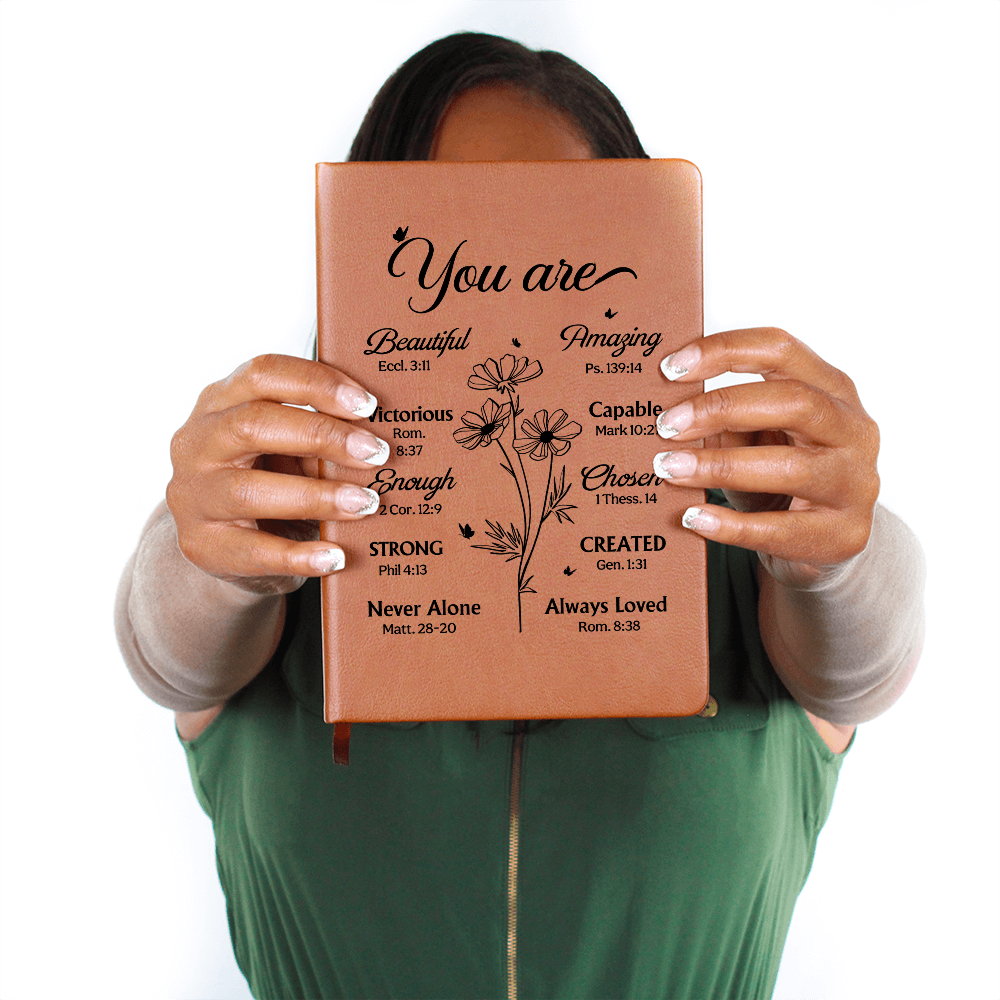 You are
Beautiful
Eccl. 3:11
Amazing
Ps. 139:14
Victorious
Rom.
8:37
Capable
Mark
Enough
2 Cor. 12:9
Chosen
1 Thess. 14
STRONG
Phil 4:13
CREATED
Gen. 1:31
Never Alone
Matt. 28-20
Always Loved
Rom. 8:38